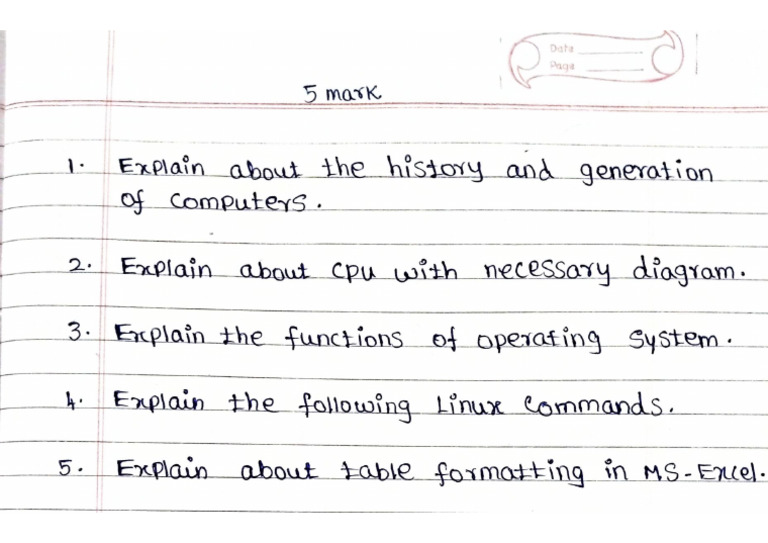 Date
Page
5 mark
1. Explain about the history and generation
of computers.
2. Explain about cpu with necessary diagram.
3. Explain the functions of operating system.
4. Explain the following Linux commands.
5. Explain about table formatting in MS-Excel.